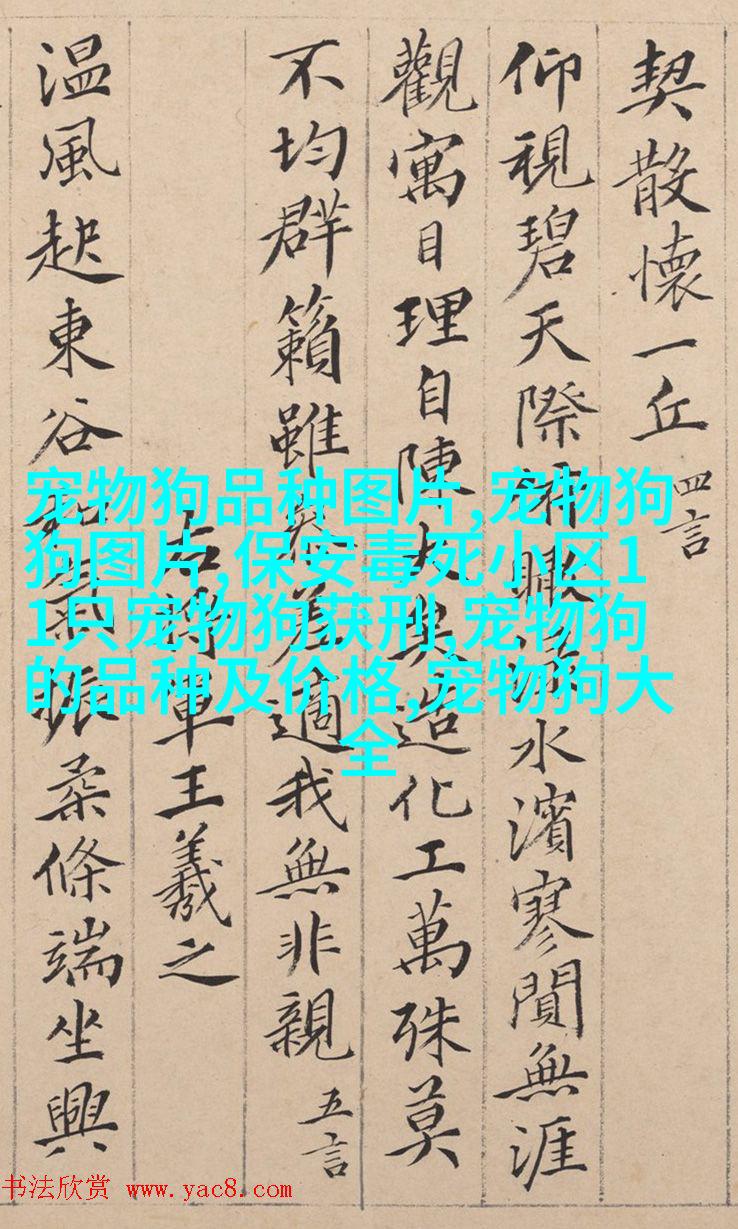 契散懷一丘 四言
仰視碧天際
水濱寥閴無涯
觀寓目理自陳大矣造化工萬殊莫
不均群籟雖參差適我無非親 五言
右將軍王羲之
温風起東谷和氣振柔條端坐興
宠物狗品种图片,宠物狗
狗图片,保安毒死小区1
1只宠物狗获刑,宠物狗
的品种及价格,宠物狗大
全
书法欣赏 www.yac8.com